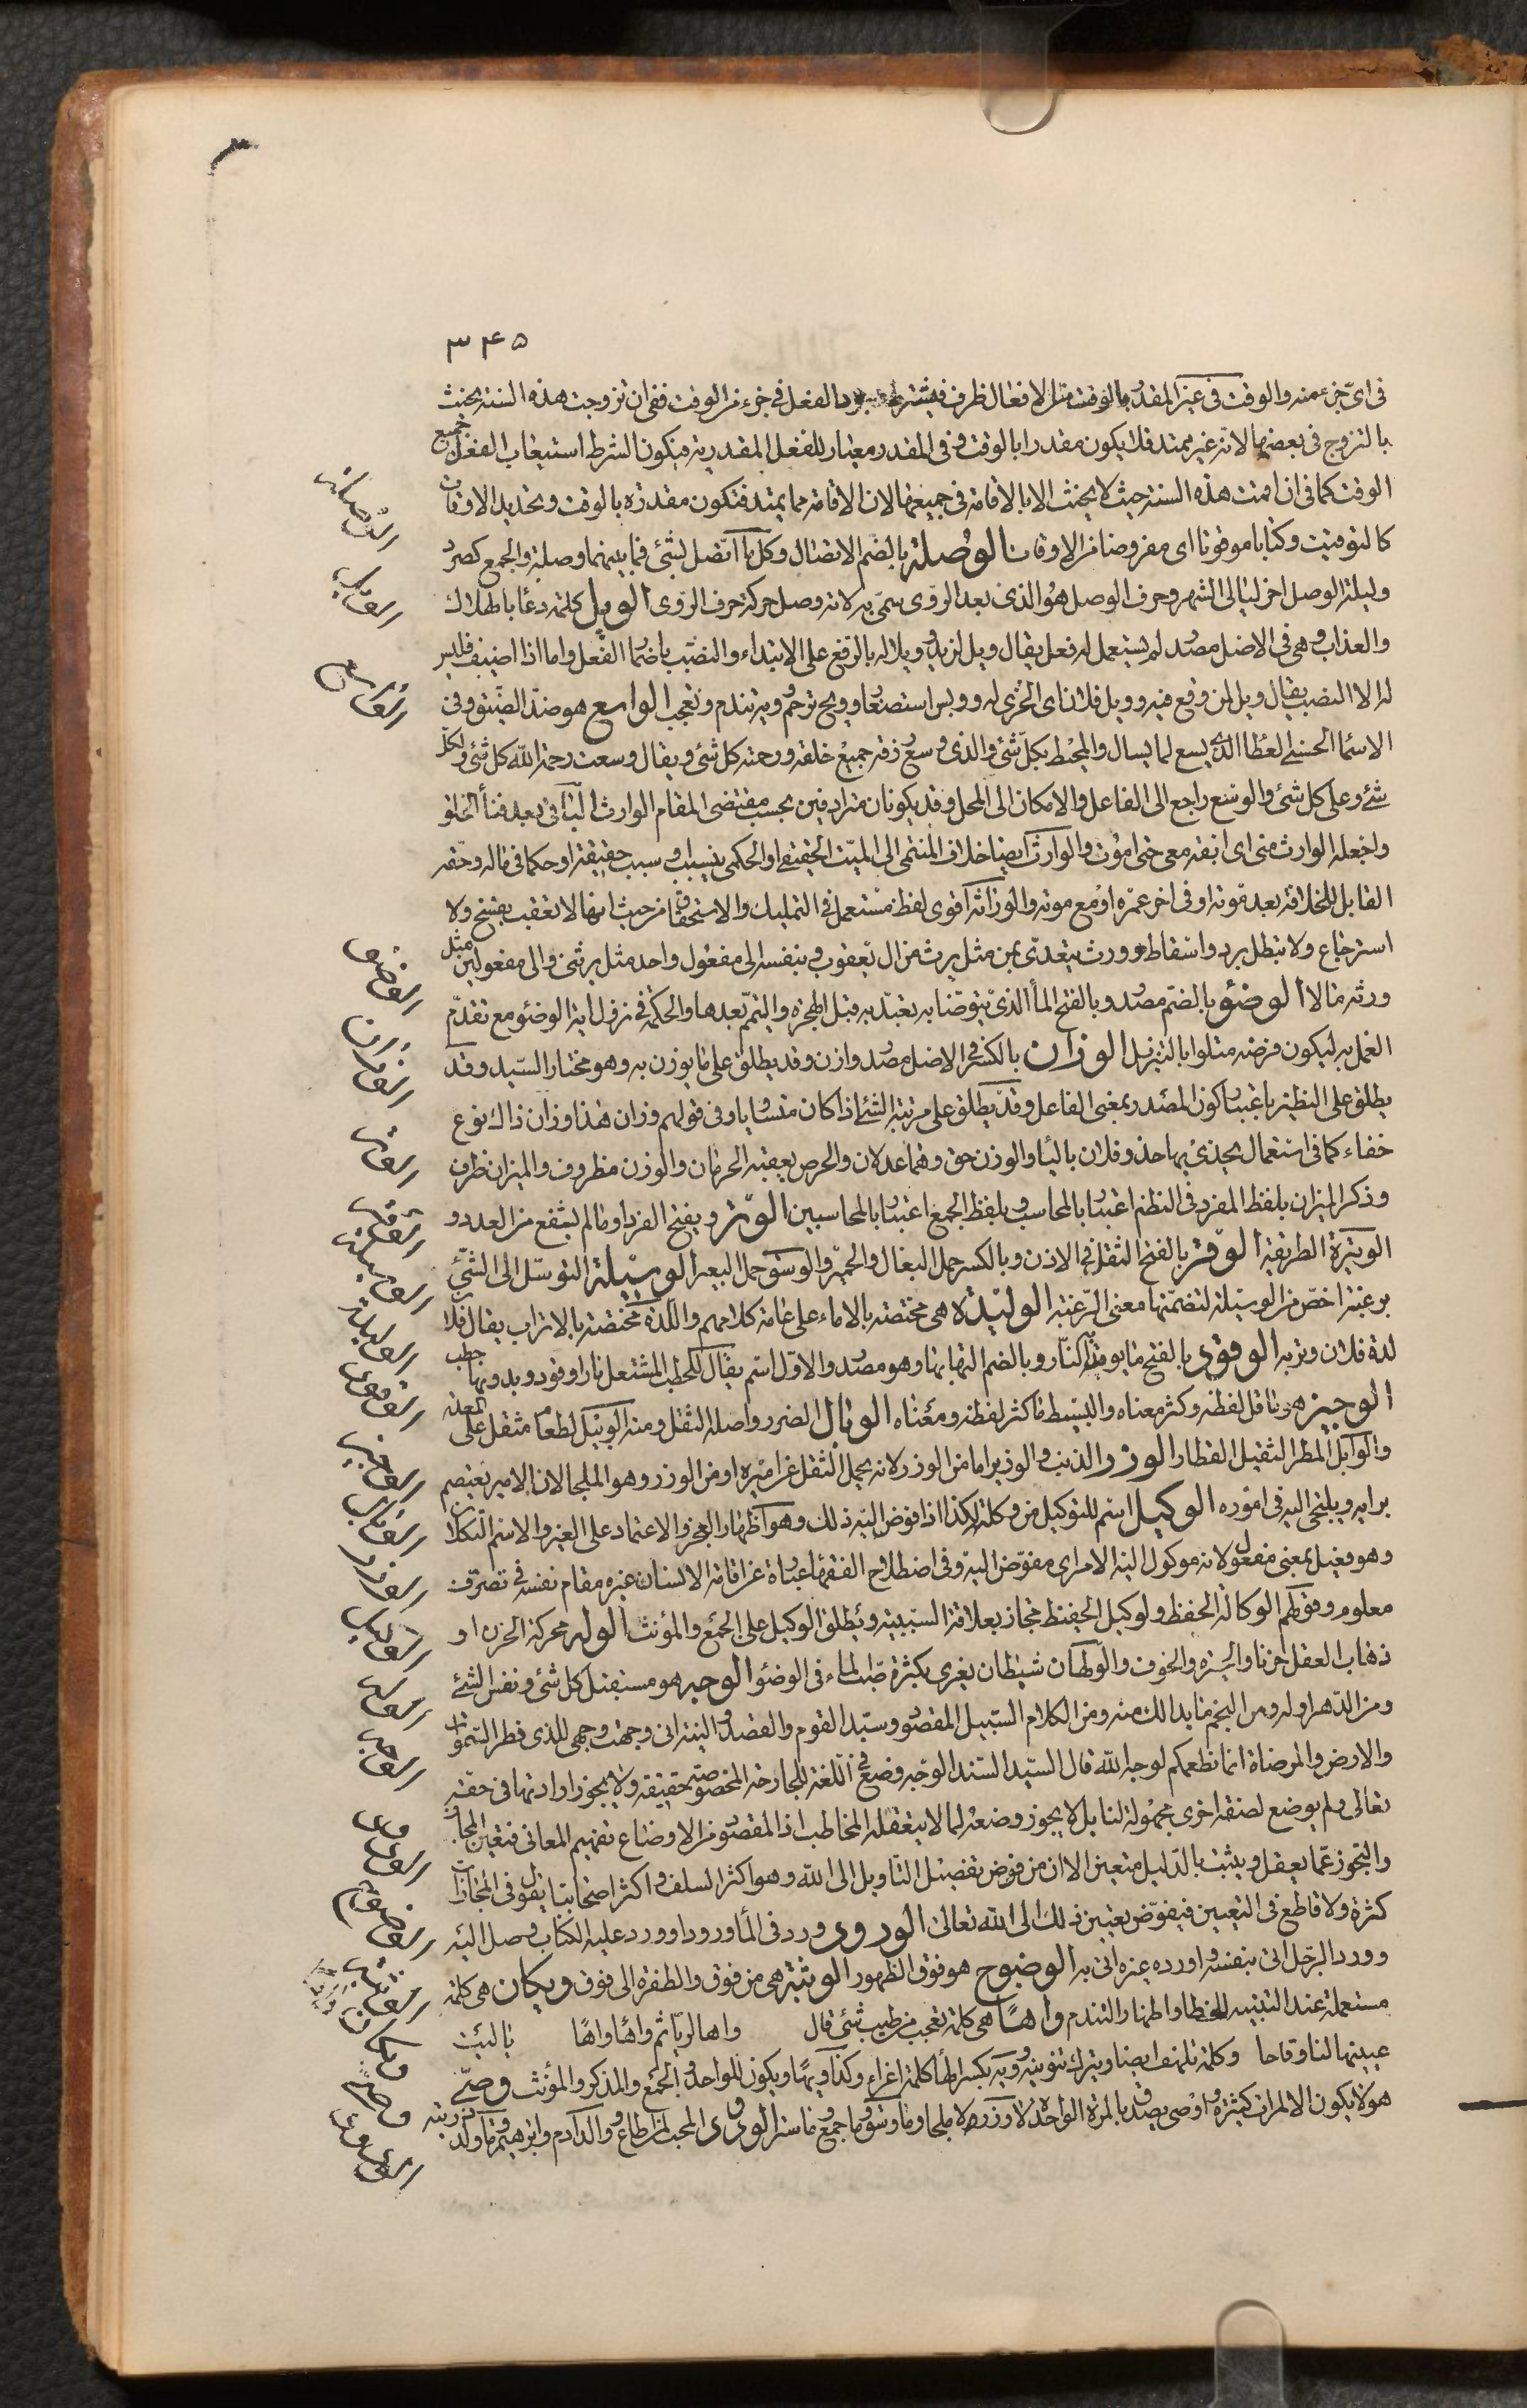 ٣٤٥
فى اىّ جزء منه والوقت فى غير المقدر بالوقت مثل الافعال ظرف فيشترط وجود الفعل فى جزء من الوقت ففى ان تزوجت هذه السنة يحنث
بالتزوج فى بعضها لانه غير ممتد فلا يكون مقدرا بالوقت وفى المقدر معيار للفعل المقدر به فيكون الشرط استيعاب الفعل جميع
الوقت كما فى ان اقمت هذه السنة حيث لا يحنث الا بالاقامة فى جميعها لان الاقامة مما يمتد فتكون مقدرة بالوقت وتحديد الاوقات
كالتوقيت وكتابا موقوتا اى مفروضا فى الاوقات الوصلة بالضم الاتصال وكل ما اتصل بشئ فما بينهما وصلة والجمع كصرد
وليلة الوصل اخر ليالى الشهر وحرف الوصل هو الذى بعد الروى سمى به لانه وصل حركة حرف الروى الويل كلمة دعا بالهلاك
والعذاب وهى فى الاصل مصدر لم يستعمل له فعل يقال ويل لزيد وويلا له بالرفع على الابتداء والنصب باضمار الفعل واما اذا اضيف فليس
له الا النصب يقال ويل لمن وقع فيه وويل فلان اى الخزى له وويس استصغار وويح ترحم وويه تندم وتعجب الواسع هو ضد الضيق وفى
الاسما الحسنى العطاء الذى يسع لما يسال والمحيط بكل شئ والذى وسع رزقه جميع خلقه ورحمته كل شئ ويقال وسعت رحمة الله كل شئ ولكل
شئ وعلى كل شئ والوسع راجع الى الفاعل والامكان الى المحل وقد يكونان مترادفين بحسب مقتضى المقام الوارث الباقى بعد فناء الخلق
واجعله الوارث منى اى ابقه معى حتى اموت والوارث ايضا خلاف المنتمى الى الميت الحقيقى او الحكمى بنسب او سبب حقيقة او حكما فى ماله وحقه
القابل للخلافة بعد موته او فى اخر عمره او مع موته والوراثة اقوى لفظ مستعمل فى التمليك والاستحقاق من حيث انها لا تعقب بفسخ ولا
استرجاع ولا تبطل برد واسقاط وورث يتعدى بمن مثل يرث من ال يعقوب وبنفسه الى مفعول واحد مثل يرثنى والى مفعولين مثل
ورثه مالا الوضوء بالضم مصدر وبالفتح الماء الذى يتوضا به تعبد به قبل الهجرة والتيمم بعدها والحكمة فى نزول اية الوضوء مع تقدم
العمل به ليكون فرضه متلوا بالتنزيل الوزان بالكسر فى الاصل مصدر وازن وقد يطلق على ما يوزن به وهو مختار السيد وقد
يطلق على النظير باعتبار كون المصدر بمعنى الفاعل وقد يطلق على مرتبة الشئ اذا كان متساويا وفى قولهم وزان هذا وزان ذاك نوع
خفاء كما فى استعمال يحذى بها حذو فلان بالباء والوزن حق وهما عدلان والحرص يعقبه الحرمان والوزن مظروف والميزان ظرف
وذكر الميزان بلفظ المفرد فى النظم اعتبارا بالمحاسب وبلفظ الجمع اعتبارا بالمحاسبين الوتر ويفتح الفرد او ما لم يشفع من العدد و
الوتيرة الطريقة الوقر بالفتح الثقل فى الاذن وبالكسر حمل البغال والحمير والوسق حمل البعير الوسيلة التوسل الى الشئ
برغبة اخص من الوصيلة لتضمنها معنى الرغبة الوليدة هى مختصة بالاماء على عامة كلامهم واللدة مختصة بالاتراب يقال فلان
لدة فلان وتربه الوقود بالفتح ما يوقد به النار وبالضم التهابها وهو مصدر والاول اسم يقال للحطب المشتعل نارا وقود وبدونها حطب
الوجيز هو ما قل لفظه وكثر معناه والبسيط ما كثر لفظه ومعناه الوبال الضرر واصله الثقل ومنه الوبيل لطعام يثقل على المعدة
والوابل المطر الثقيل القطار الوزر الذنب والوزير اما من الوزر لانه يحمل الثقل عن اميره او من الوزر وهو الملجا لان الامير يعتصم
برايه ويلتجى اليه فى اموره الوكيل اسم للتوكيل من وكلته بكذا اذا فوض اليه ذلك وهو اظهار العجز والاعتماد على الغير والاسم التكلان
وهو فعيل بمعنى مفعول لانه موكول اليه الامر اى مفوض اليه وفى اصطلاح الفقهاء عبارة عن اقامة الانسان غيره مقام نفسه فى تصرف
معلوم وقولهم الوكالة الحفظ ولوكيل الحفيظ مجاز بعلاقة السببية ويطلق الوكيل على الجمع والمؤنث الوله محركة الحزن او
ذهاب العقل حزنا والحيرة والخوف والولهان شيطان يغرى بكثرة صب الماء فى الوضوء الوجه هو مستقبل كل شئ ونفس الشئ
ومن الدهر اوله ومن النجم ما بدا لك منه ومن الكلام السبيل المقصود وسيد القوم والقصد والنية انى وجهت وجهى للذى فطر السموات
والارض والمرضاة انما نطعمكم لوجه الله قال السيد السند الوجه وضع فى اللغة للجارحة المخصوصة حقيقة ولا يجوز ارادتها فى حقه
تعالى ولم يوضع لصفة اخرى مجهولة لنا بل لا يجوز وضعه لما لا يتعقله المخاطب اذ المقصود من الاوضاع تفهيم المعانى فتعين المجاز
والتجوز عما يعقل ويثبت بالدليل متعين الا ان من فوض تفصيل التاويل الى الله وهو اكثر السلف واكثر اصحابنا يقول فى المجازات
كثرة ولا قاطع فى التعيين فيفوض تعيين ذلك الى الله تعالى الورود ورد فى الماء ورودا وورد عليه الكتاب وصل اليه
وورد الرجل اتى بنفسه واورده غيره اتى به الوضوح هو فوق الظهور الوثبة هى من فوق والطفرة الى فوق ويكان هى كلمة
مستعملة عند التنبيه للخطا واظهار التندم واها هى كلمة تعجب من طيب شئ قال واها لريا ثم واها واها ياليت
عينيها لنا وفاها وكلمة تلهف ايضا ويترك تنوينه وويه بكسر الهاء كلمة اغراء وكذا ويها ويكون للواحد والجمع والمذكر والمؤنث وصى
هو لا يكون الا لمرات كثيرة واوصى يصدق بالمرة الواحدة لا وزر لا ملجا وما وسق وما جمع وما ستر الودود المحب لمن اطاع ووالد ادم وابرهيم وما ولد ذريته
الوصلة
الويل
الواسع
الوضوء
الوزان
الوتر
الوقر
الوسيلة
الوليدة
الوقود
الوجيز
الوبال
الوزر
الوكيل
الوله
الوجه
الورود
الوضوح
الوثبة
ويكان
وصى
الودود